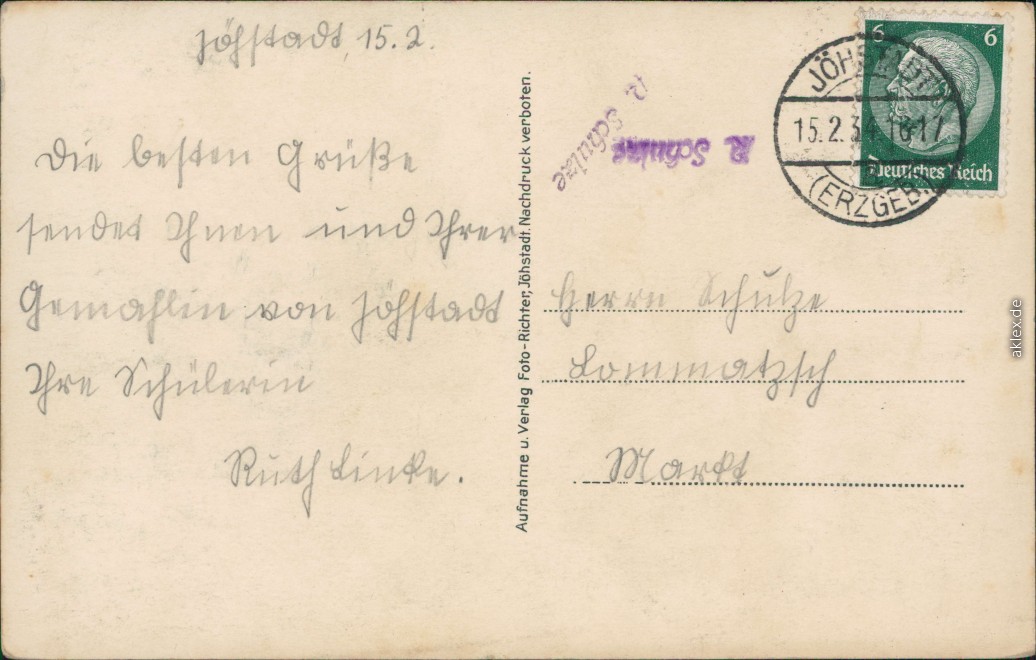 Jöhstadt, 15. 2.
Die besten Grüße
sendet Ihnen und Ihrer
Gemahlin von Jöhstadt
Ihre Schülerin
Ruth Linke.
Aufnahme u. Verlag Foto-Richter, Jöhstadt. Nachdruck verboten.
R. Schulze
R. Schulze
6 6
Deutsches Reich
JÖHSTADT
15.2.34.16-17
(ERZGEB.)
Herrn Schulze
Lommatzsch
Markt
aklex.de